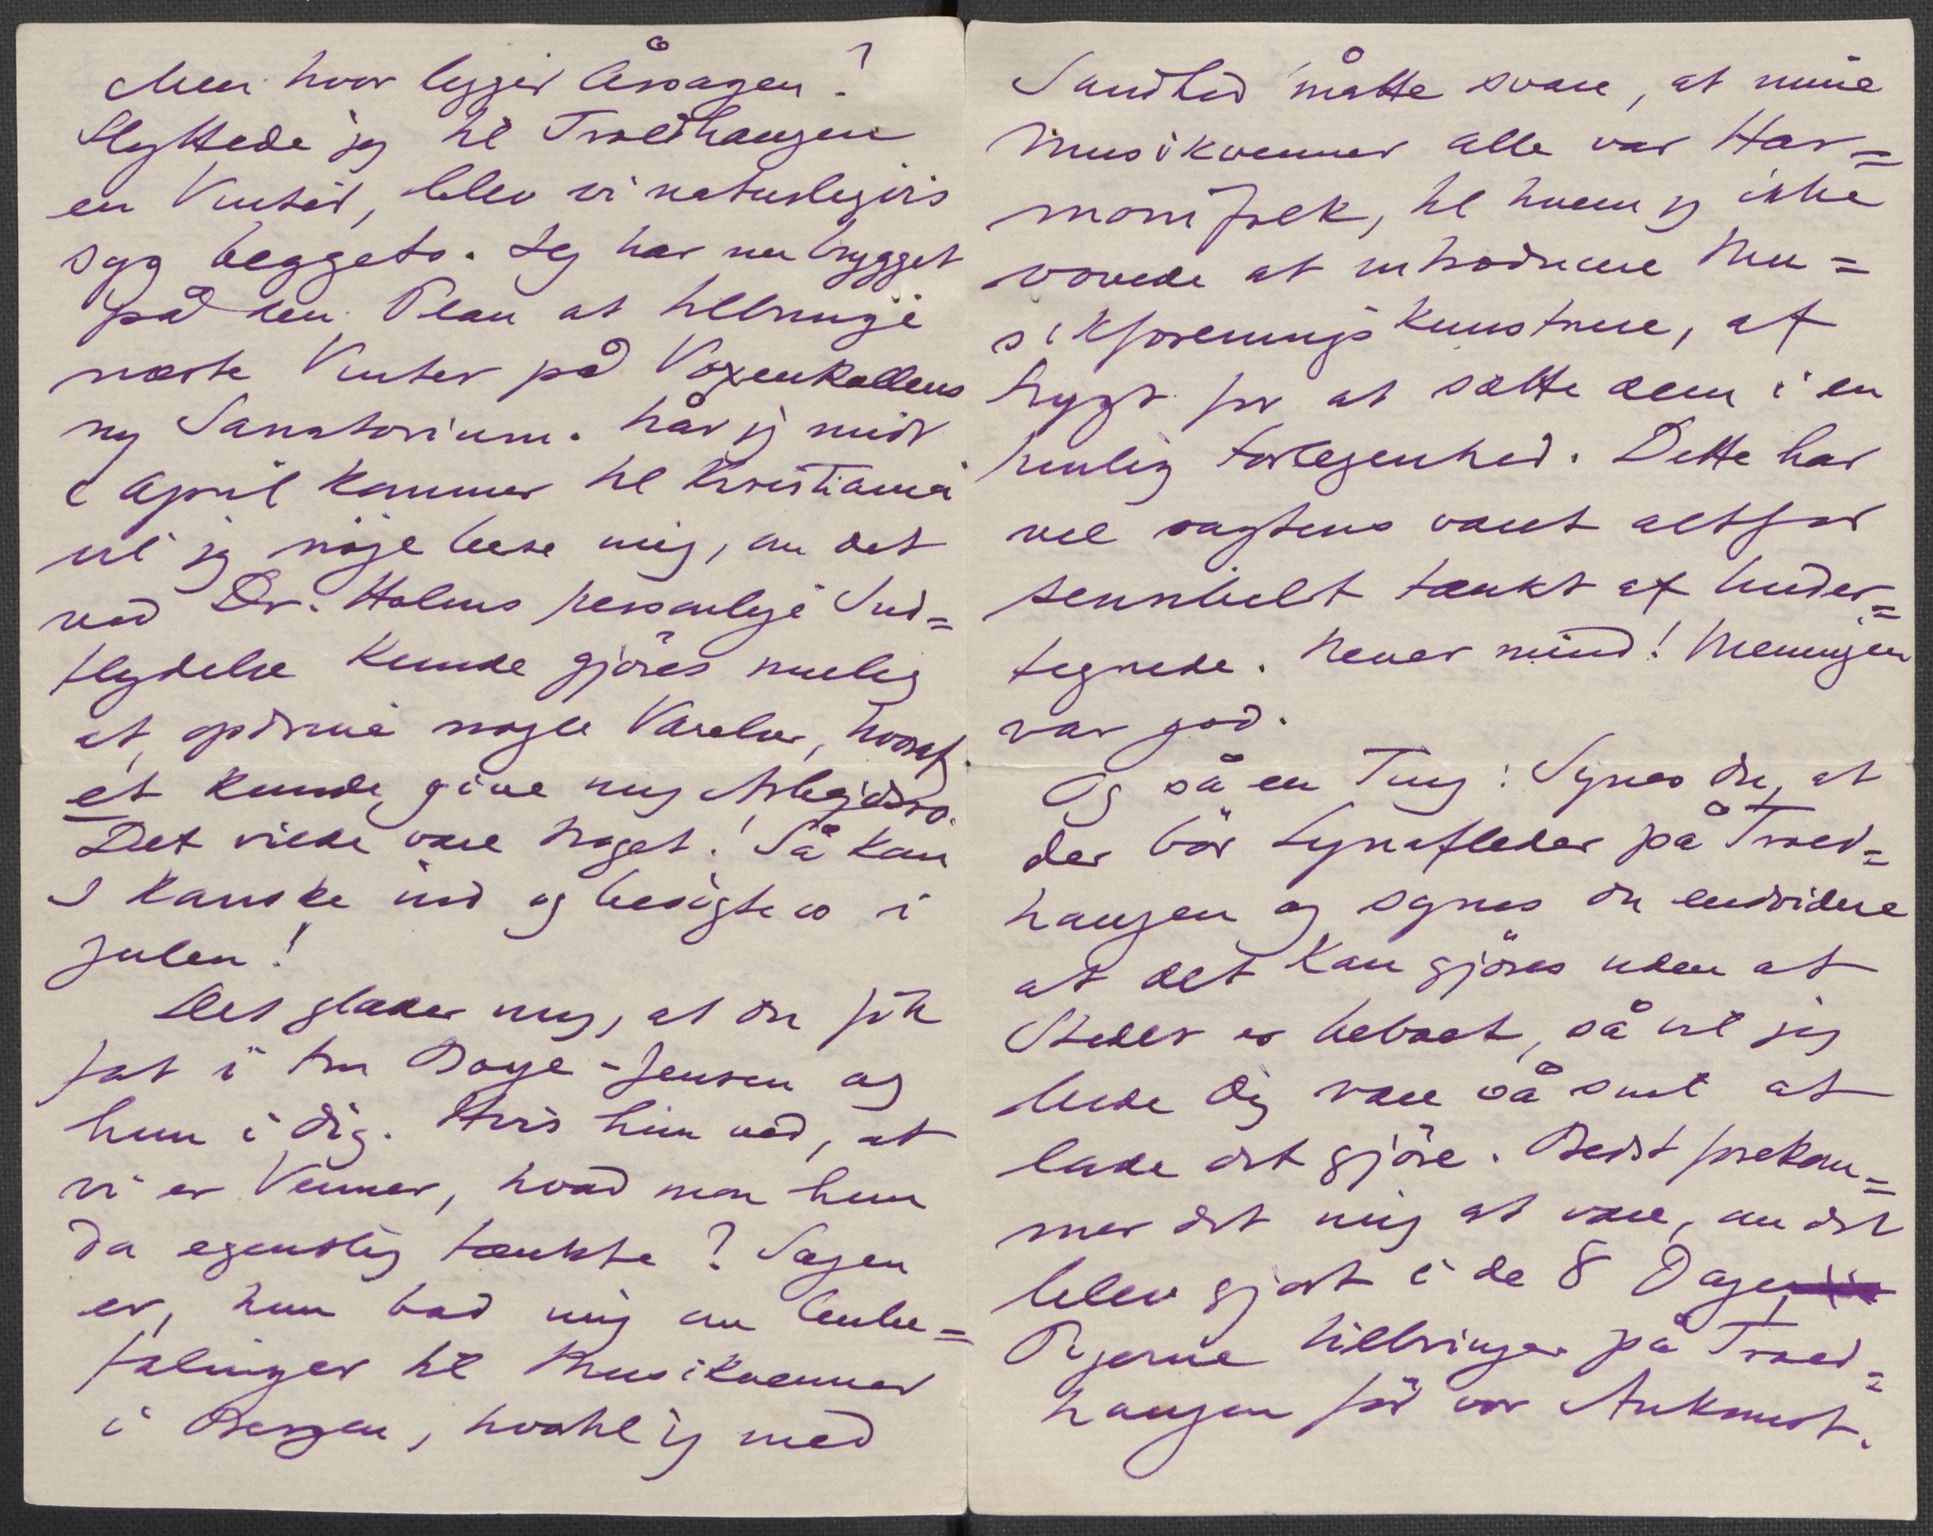 Men hvor ligger Årsagen?
Flyttede jeg til Troldhaugen
en Vinter, blev vi naturligvis
syg beggeto. Jeg har nu bygget
på den Plan at tilbringe
næste Vinter på Voxenkollens
ny Sanatorium. Når jeg midt
i April kommer til Kristiania
vil jeg nøje bese mig, om det
ved Dr. Holms personlige Ind=
flydelse kunde gjöres mulig
at opdrive nogle Værelser, hvoraf
et kunde give mig Arbejdsro.
Det vilde være Noget! Så kan
I kanske ind og besøgte os i
Julen!
Det glæder mig, at du fik
fat i Fru Boye-Jensen og
hun i dig. Hvis hun ved, at
vi er Venner, hvad mon hun
da egentlig tænkte? Sagen
er, hun bad mig om Anbe=
falinger til Musikvenner
i Bergen, hvortil jeg med
Sandhed måtte svare, at mine
Musikvenner alle var Har=
monifolk, til hvem jeg ikke
vovede at introducere Mu=
sikforenings kunstnere, af
Frygt for at sætte dem i en
pinlig Forlegenhed. Dette har
vel sagtens været altfor
sensibelt tænkt af Under=
tegnede. Never mind! Meningen
var god.
Og så en Ting: Synes du, at
der bör Lynafleder på Trold=
haugen og synes du endvidere
at det kan gjöres uden at
Stedet er beboet, så vil jeg
bede dig være så snil at
lade det gjöre. Bedst forekom=
mer det mig at være, om det
blev gjort i de 8 Dage,
Pigerne tilbringer på Trold=
haugen för vor Ankomst.